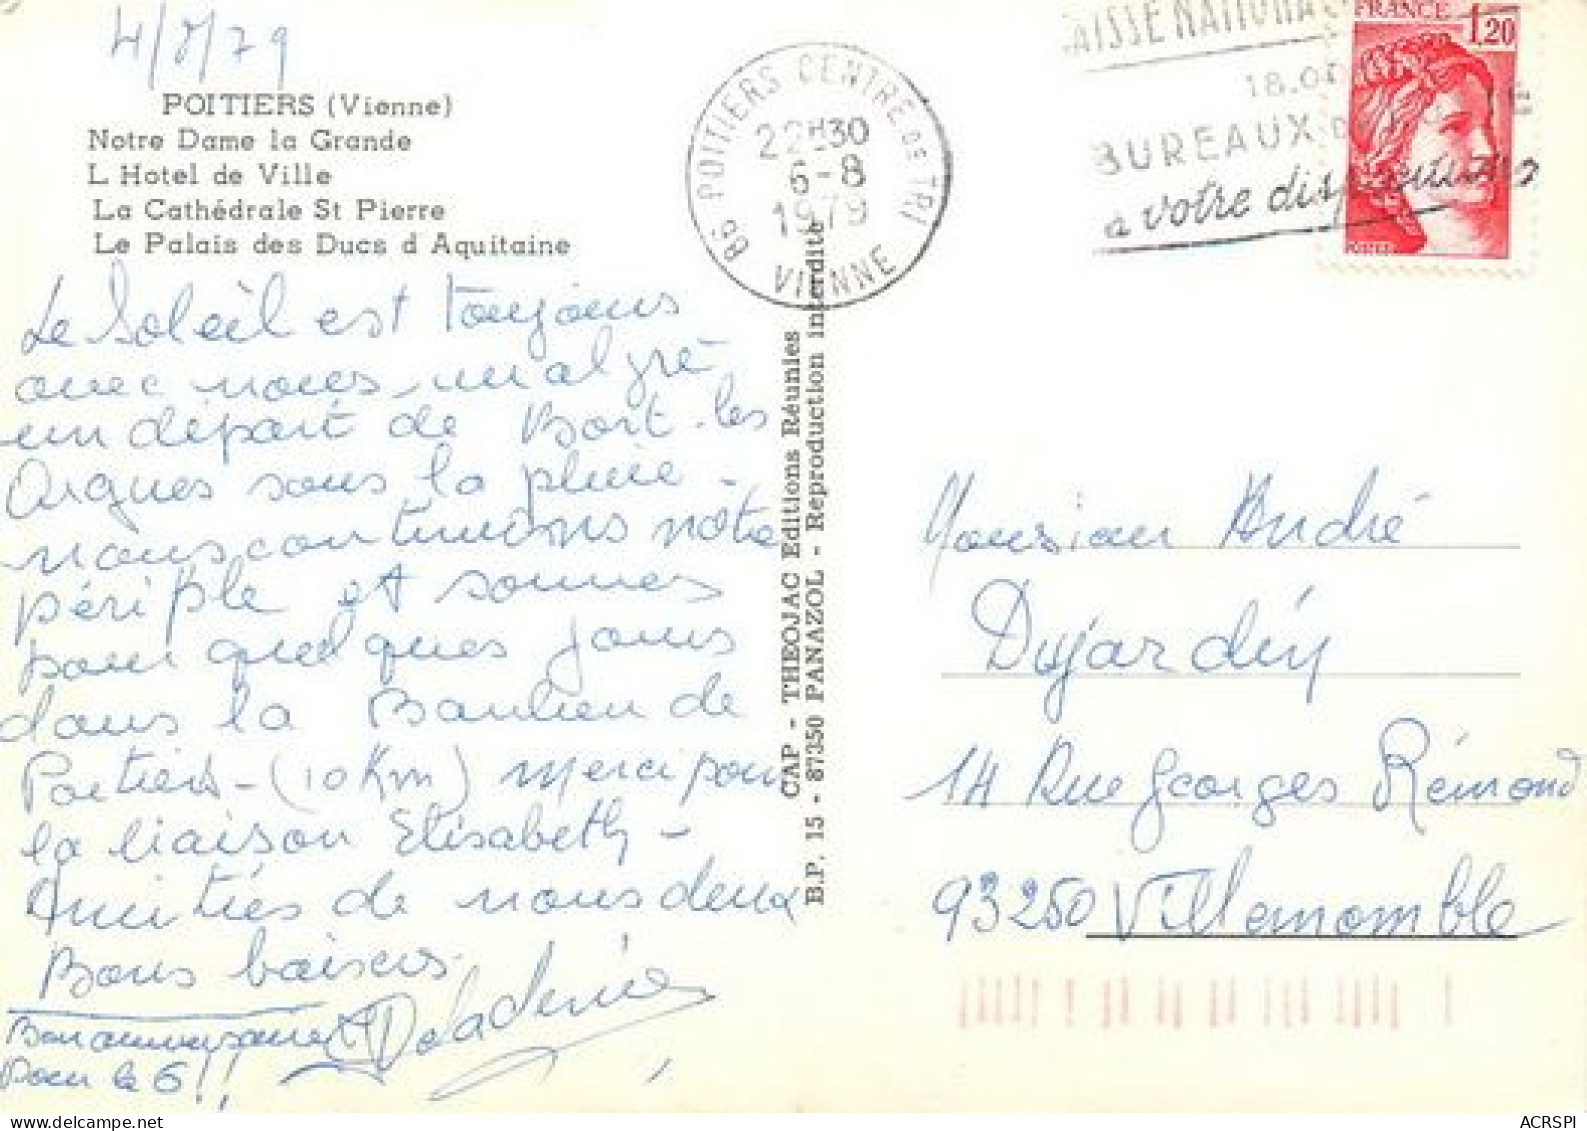 4/8/79
POITIERS (Vienne)
Notre Dame la Grande
L Hotel de Ville
La Cathédrale St Pierre
Le Palais des Ducs d Aquitaine
Le Soleil est toujours
avec nous, malgré
un départ de Bort-les
Orgues sous la pluie -
nous continuons notre
périple et sommes
pour quelques jours
dans la Banlieu de
Poitiers - (10 Km) merci pour
la liaison Elisabeth -
Amitiés de nous deux
Bons baisers.
Bon anniversaire
Pour le 6!!
86 POITIERS CENTRE DE TRI
22H30
6-8
1979
VIENNE
CAP - THEOJAC Editions Réunies
B.P. 15 - 87350 PANAZOL - Reproduction interdite
AISSE NATIONA
BUREAUX
à votre disposition
FRANCE
1,20
POSTES
Monsieur André
Dujardin
14 Rue Georges Rémond
93250 Villemomble
ACRSPI